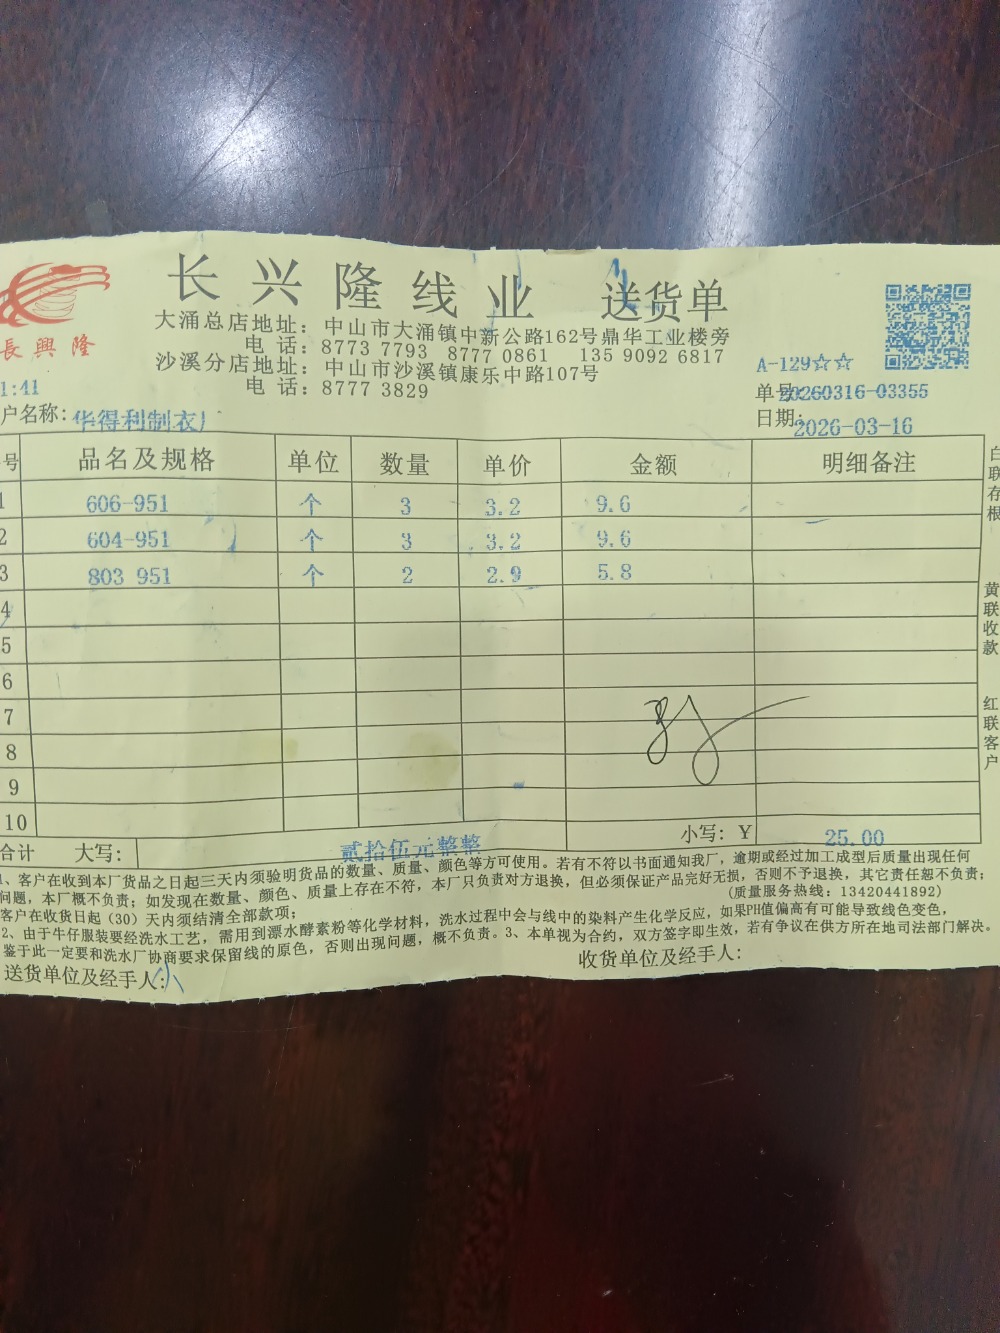 长兴隆线业 送货单
長興隆
大涌总店地址：中山市大涌镇中新公路162号鼎华工业楼旁
电话：8773 7793 8777 0861 135 9092 6817
沙溪分店地址：中山市沙溪镇康乐中路107号
电话：8777 3829
A-129☆☆
1:41
单号:20260316-03355
户名称：华得利制衣厂
日期：2026-03-16
号 品名及规格 单位 数量 单价 金额 明细备注
1 606-951 个 3 3.2 9.6
2 604-951 个 3 3.2 9.6
3 803 951 个 2 2.9 5.8
4
5
6
7
8
9
10
合计 大写： 贰拾伍元整整 小写：Y 25.00
白联存根
黄联收款
红联客户
1、客户在收到本厂货品之日起三天内须验明货品的数量、质量、颜色等方可使用。若有不符以书面通知我厂，逾期或经过加工成型后质量出现任何
问题，本厂概不负责；如发现在数量、颜色、质量上存在不符，本厂只负责对方退换，但必须保证产品完好无损，否则不予退换，其它责任恕不负责；
客户在收货日起（30）天内须结清全部款项； (质量服务热线：13420441892)
2、由于牛仔服装要经洗水工艺，需用到漂水酵素粉等化学材料，洗水过程中会与线中的染料产生化学反应，如果PH值偏高有可能导致线色变色，
鉴于此一定要和洗水厂协商要求保留线的原色，否则出现问题，概不负责。3、本单视为合约，双方签字即生效，若有争议在供方所在地司法部门解决。
送货单位及经手人: 收货单位及经手人: